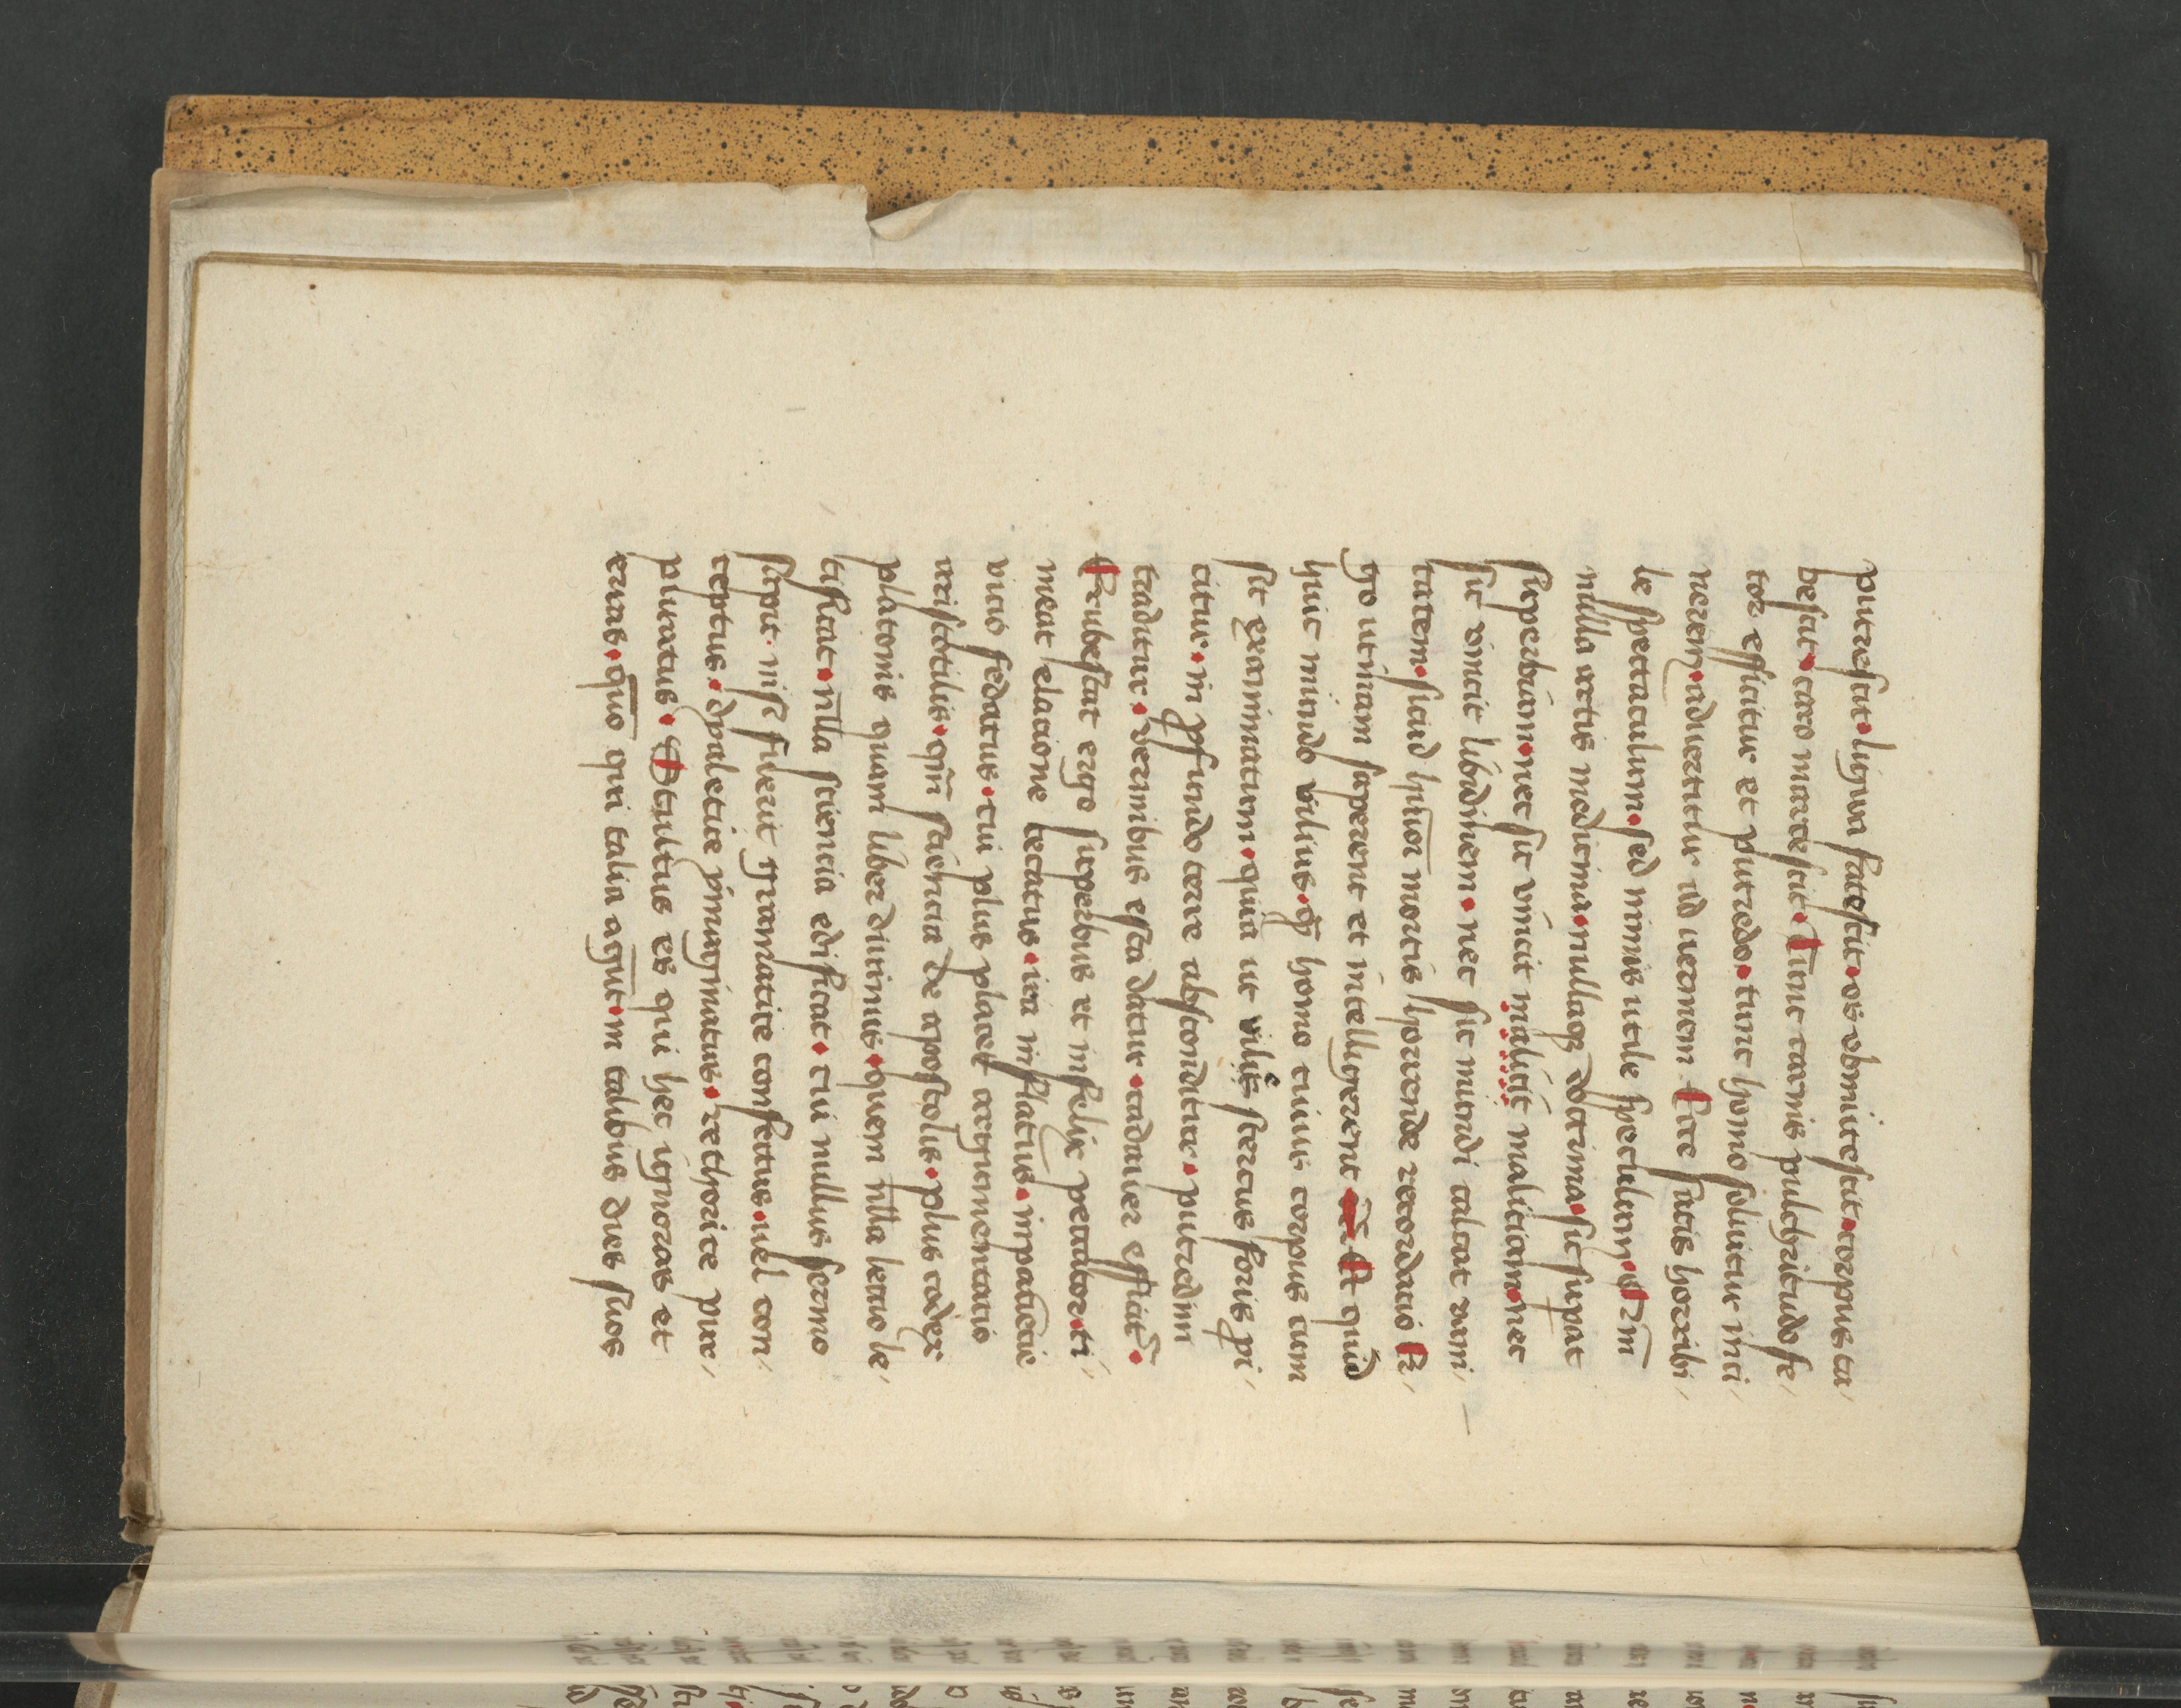 putrescit · lingwa fatescit · os obmutescit · corpus ta⸗
bescit · caro marcescit · Tunc carnis pulchritudo fe⸗
tor efficitur et putredo · tunc homo solvitur in ci⸗
nerem · advertitur ad vermem Ecce satis horribi⸗
le spectaculum · sed nimis utile speculum · 
nulla artis medicina · nullaqꝫ doctrina · sic supat
superbiam · nec sic vincit malicit maliciam · nec
sic vincit libidinem · nec sic mundi calcat vani⸗
tatem · sicud mortis horrende recordacio
go utinam saperent et intelligerent quid
huic mundo vilius · homo cuius corpus cum
sit exanimatum · quia ut vile stercus foris pi⸗
citur · in ꝓfundo terre absconditur · putredini
traditur · vermibus esca datur · cadaver
Erubescat ergo superbus et infelix peccator · ti⸗
meat elacione tectatus · ira inflatus · inpaciēcie
vicio fedatus · cui plus placet argumentacio
aristotilis · qm̄ sciencia de apostolis · plus codex
platonis quam liber divinus · quem nl̄la lectio le⸗
tificat · nl̄la sciencia edificat · cui nullus sermo
sapit · nisi fuerit gramatice confectus · vel con⸗
ceptus · dyaletice ymaginatus · rethorice pur⸗
puratus · Stultus es qui hec ignoras et
erras · qm̄o qui talia agūt · in talibus dies suos